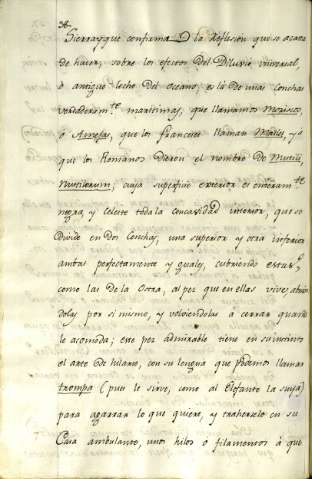 38.
Sierra, y que confirma D la Reflesion que se acava
de hacer, sobre los efectos del Diluvio universal,
ò antiguo leche del oceano, es la de unas conchas
verdaderamte maritimas, que llamamos Moxisco,
ò que los franceses llaman Moules, y à
qui los Romanos dieron el nombre de Mutuli,
Mutulorum; cuya superficie exterior es enteramte
negra, y celeste toda la concavidad interior, que se
Divide en dos Conchas, una superior y otra inferior
ambas perfectamente yguales, cubriendo estas
como las de la Ostra, al pez que en ellas vive; abrien
dolas por si mismo, y volviendolas à cerrar quando
le acomoda; ese pez admirable tiene en su instinto
el arte de hilar, con su lengua que podamos llamar
trompa (pues le sirve, como al Elefante la suya)
para agarrar lo que quiere, y traherselo en su
Casa ambulante, unos hilos ò filamentos à que